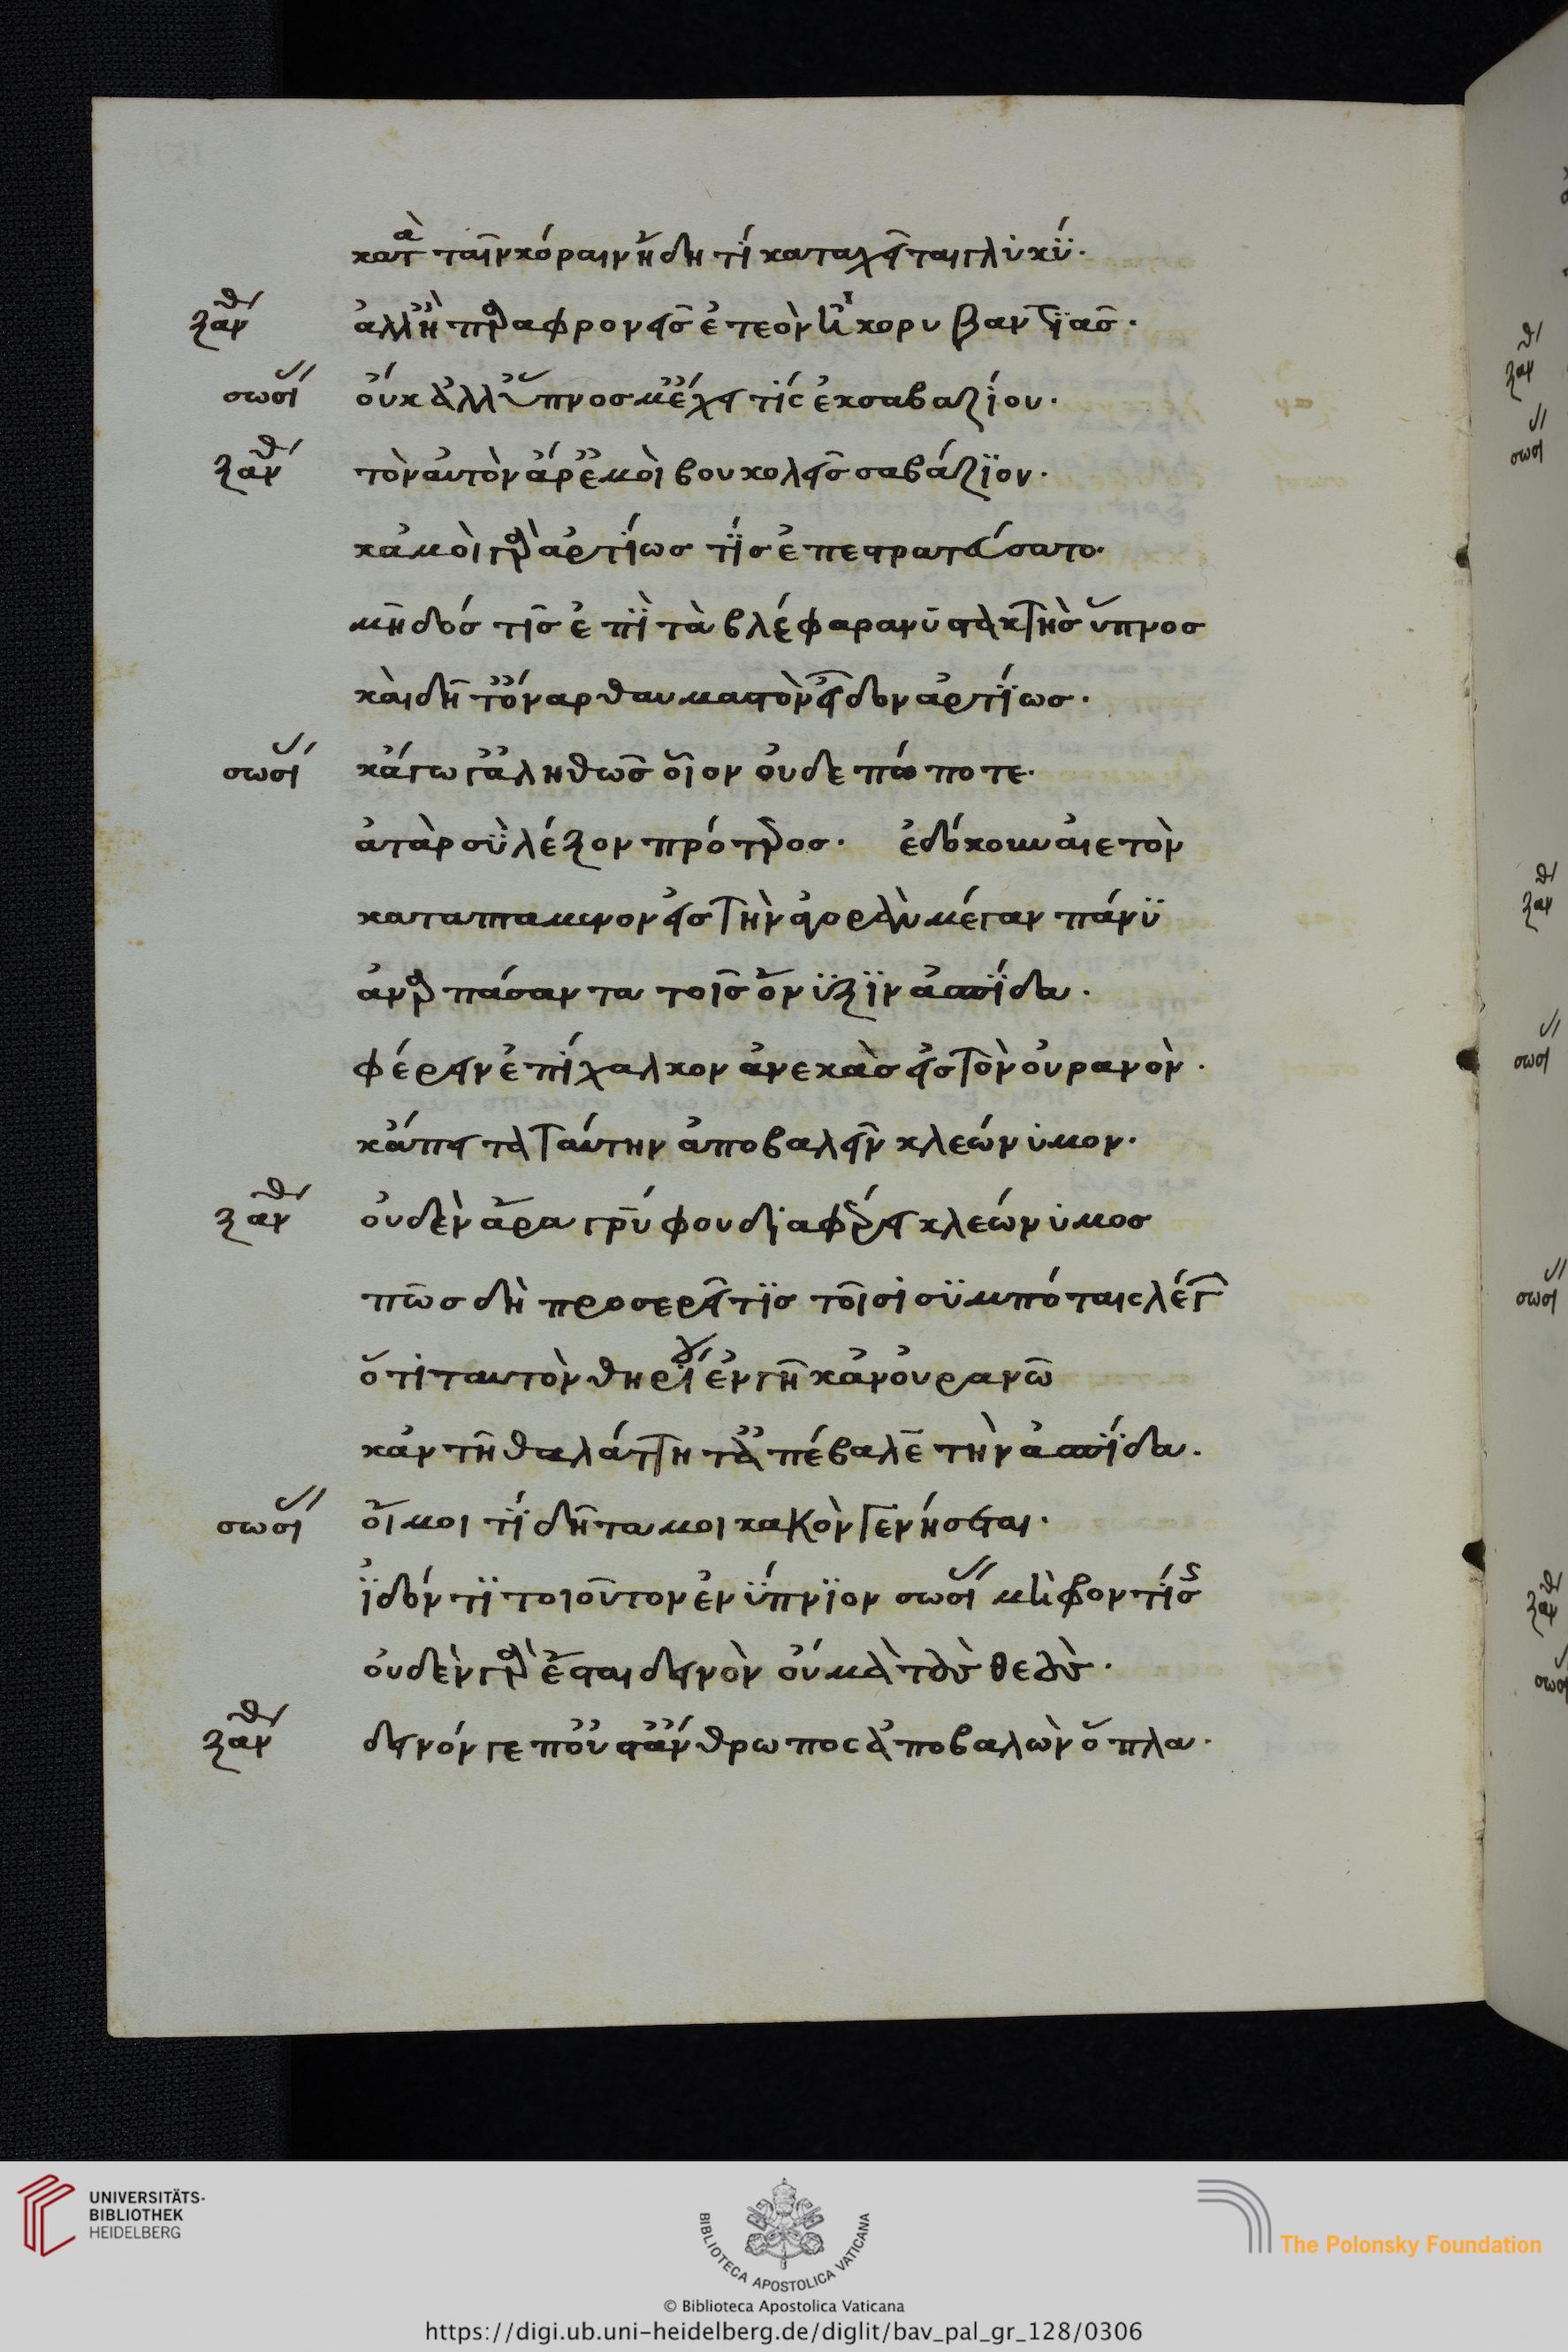 κατὰ ταῖν κόραιν ἤδη τί καταχεῖται γλυκύ·
ξανθ ἀλλ' ἦ παραφρονεῖς ἐτεὸν ἢ κορυβαντιᾶς·
σωσι οὔκ ἀλλ' ὕπνος μ' ἔχει τίς ἐκ σαβαζίου·
ξανθ τὸν αὐτὸν ἄρ' ἐμοὶ βουκολεῖς σαβάζιον·
κἀμοὶ γὰρ ἀρτίως τίς ἐπεστρατεύσατο·
μῆδός τῖς ἐπὶ τὰ βλέφαρα νυστακτὴς ὕπνος
καὶ δῆτ' ὄναρ θαυμαστὸν εἶδον ἀρτίως·
σωσι κἄγωγ' ἀληθῶς οἷον οὐδεπώποτε·
ἀτὰρ σὺ λέξον πρότερος· ἐδόκουν αἰετὸν
καταπτάμενον εἰς τὴν ἀγορὰν μέγαν πάνυ
ἀναρπάσαντα τοῖς ὄνυξιν ἀσπίδα·
φέρειν ἐπίχαλκον ἀνεκὰς εἰς τὸν οὐρανὸν·
κἄπειτα ταύτην ἀποβαλεῖν κλεώνυμον·
ξανθ οὐδὲν ἄρα γρίφου διαφέρει κλεώνυμος
πῶς δὴ προσερεῖ τις τοῖσι συμπόταις λέγ
ὅτι ταυτὸν θηρίον ἐν γῆ κἀν οὐρανῶ
κἀν τῆ θαλάττη τ' ἀπέβαλε τὴν ἀσπίδα·
σωσι οἴμοι τί δῆτα μοι κακὸν γενήσεται·
ἰδόντι τοιοῦτον ἐνύπνιον σωσι μὴ φροντίσ
οὐδὲν γὰρ ἔσται δεινὸν οὔ μὰ τοὺς θεοὺς·
ξανθ δεινόν γε ποὔστ' ἄνθρωπος ἀποβαλὼν ὅπλα·
UNIVERSITÄTS-
BIBLIOTHEK
HEIDELBERG
BIBLIOTECA APOSTOLICA VATICANA
The Polonsky Foundation
© Biblioteca Apostolica Vaticana
https://digi.ub.uni-heidelberg.de/diglit/bav_pal_gr_128/0306